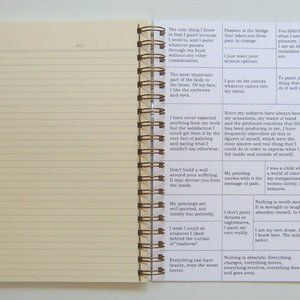 The only thing I know
is that I paint because
I need to, and I paint
whatever passes
through my head
without any other
consideration.
Passion is the bridge that
takes you from
pain to change.
I just want your
serious opinion.
The most important
part of the body is
the brain. Of my face,
I like the eyebrows
and eyes.
I put on the canvas
whatever comes into
my mind.
I have never expected
anything from my work
but the satisfaction I
could get from it by the
very fact of painting
and saying what I
couldn't say otherwise.
Since my subjects have always been
my sensations, my states of mind
and the profound reactions that life
has been producing in me, I have
frequently objectified all this in
figures of myself, which were the
most sincere and real thing that I
could do in order to express what I
felt inside and outside of myself.
Don't build a wall
around your suffering.
It may devour you from
the inside.
My painting
carries with it the
message of pain.
My paintings are
well-painted, not
nimbly but patiently.
I wish I could do
whatever I liked
behind the curtain
of "madness".
I don't paint
dreams or
nightmares,
I paint my
own reality.
Everything can have
beauty, even the worst
horror.
Nothing is absolute. Everything
changes, everything moves,
everything revolves, everything flies
and goes away.